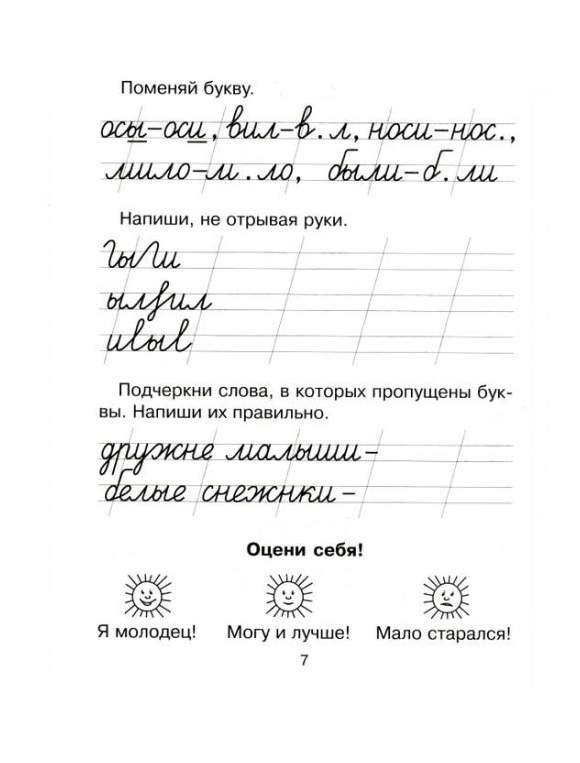 Поменяй букву.
осы-оси, вил-в.л, носи-нос.,
мило-м.ло, были-б.ли
Напиши, не отрывая руки.
Подчеркни слова, в которых пропущены бук-
вы. Напиши их правильно.
дружне малыши-
белые снежнки-
Оцени себя!
Я молодец! Могу и лучше! Мало старался!
7